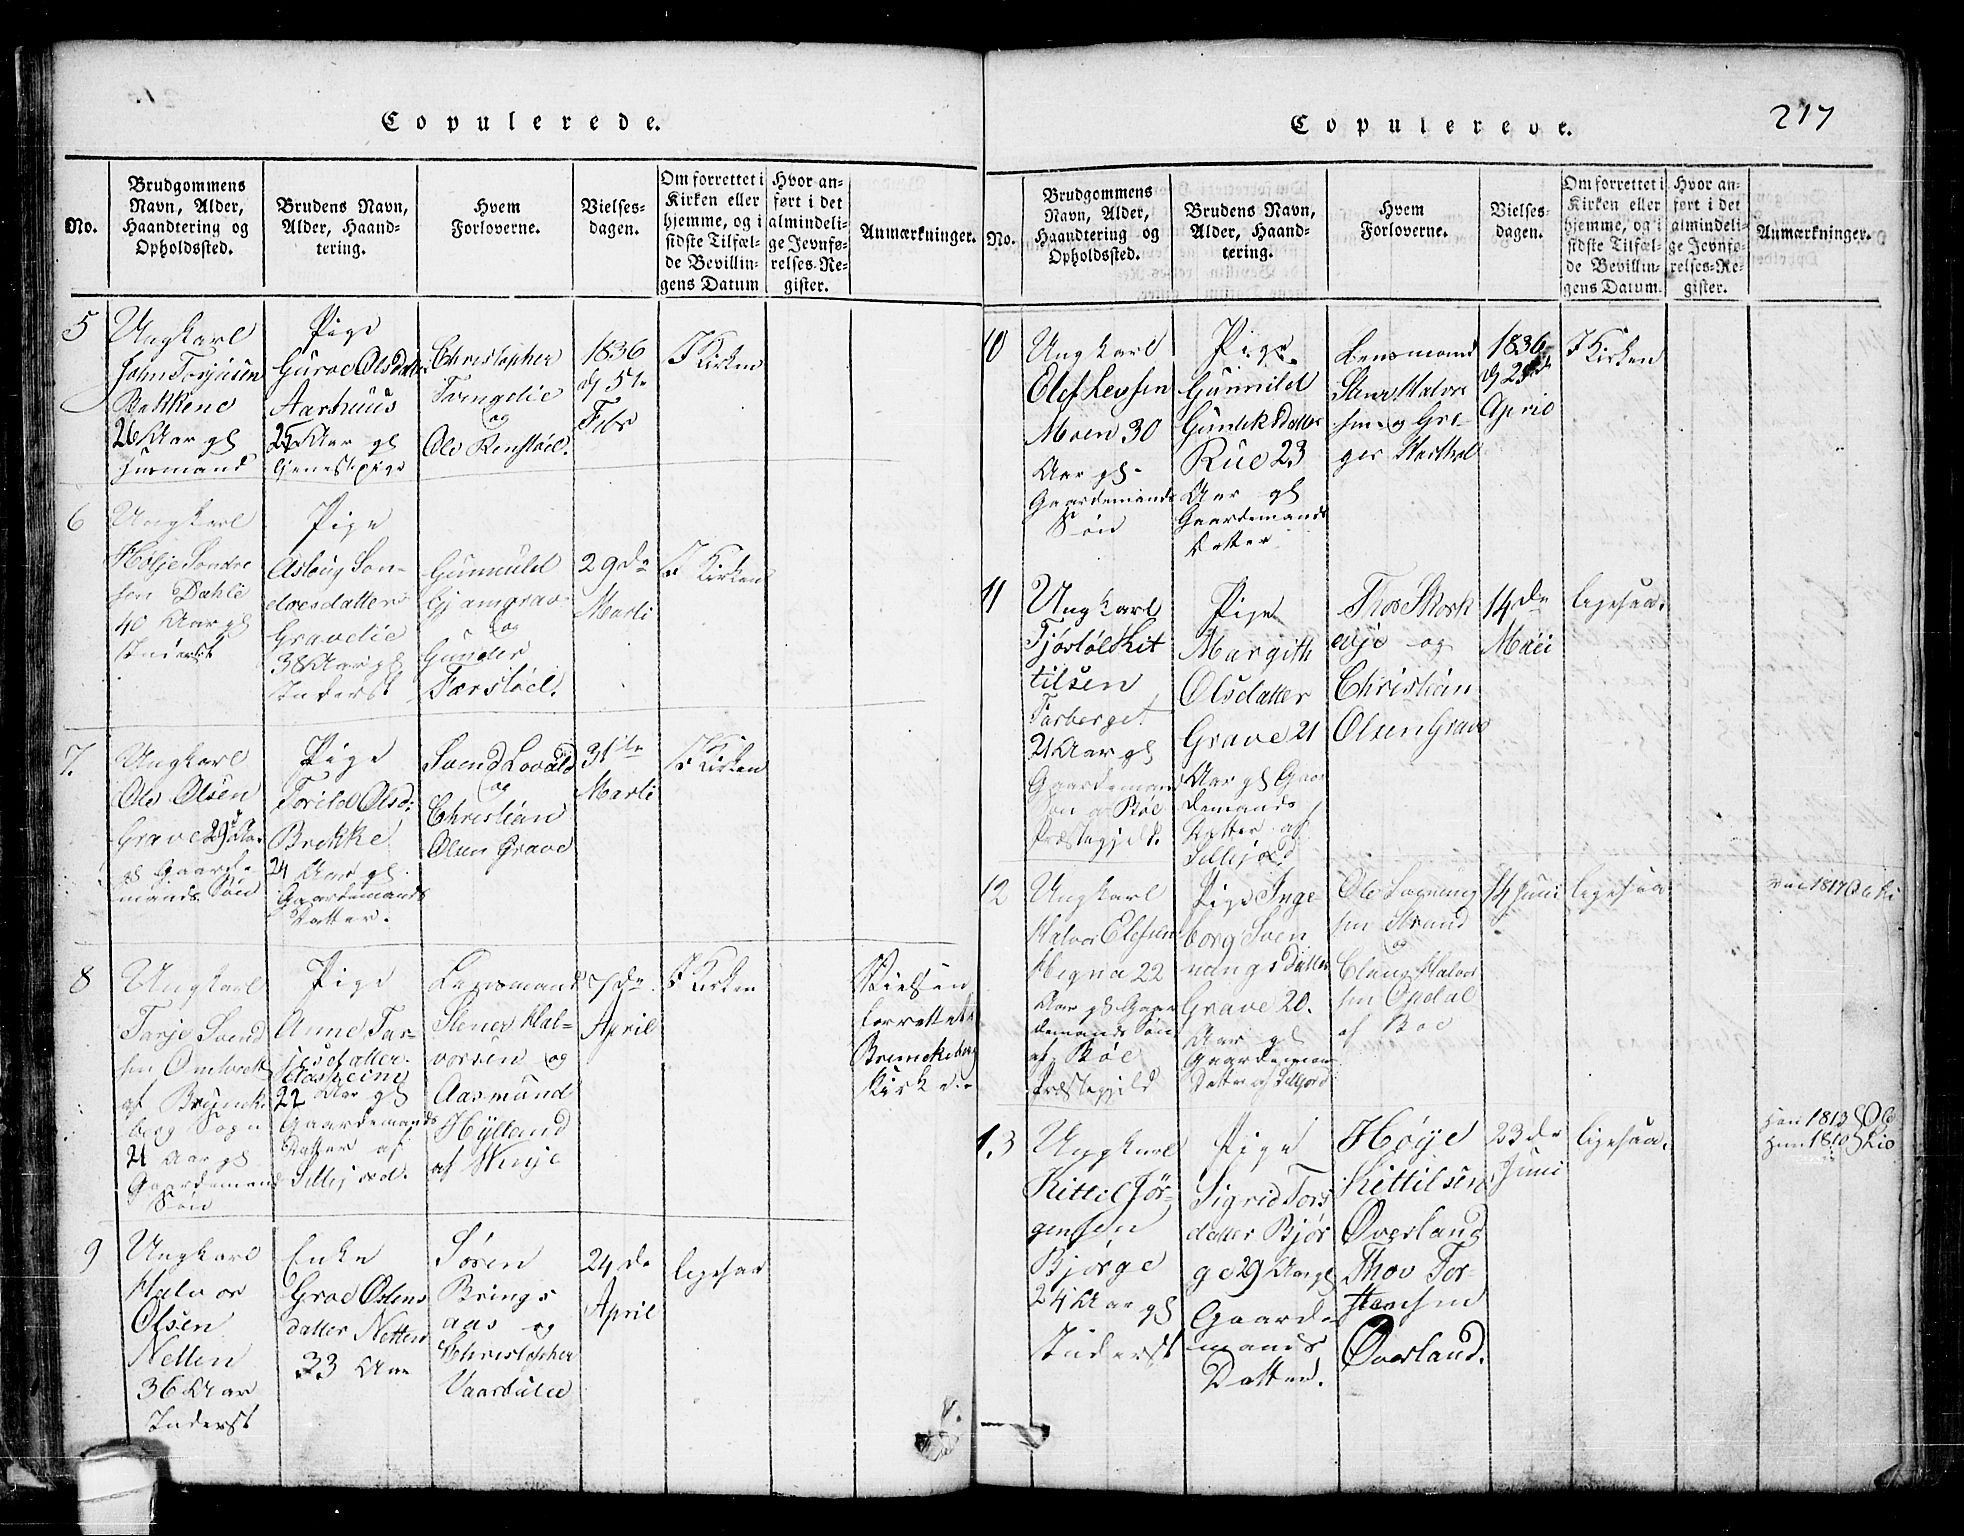 Copulerede.
No.
Brudgommens
Navn, Alder,
Haandtering og
Opholdssted.
Brudens Navn,
Alder, Haand-
tering.
Hvem
Forloverne.
Vielses-
dagen.
Om forrettet i
Kirken eller
hjemme, og i
sidste Tilfæl-
de Bevillin-
gens Datum
Hvor an-
ført i det
almindeli-
ge Jevnfø-
relses-Re-
gister.
Anmærkninger.
5
Ungkarl
John Torjusen
Bakkene
26 Aar gl
Huusmand
Pige
Guroe Olsdatter
Aarhuus
25 Aar gl
Tjenestepige
Christopher
og
1836
d 5te
Febr
I Kirken
6
Ungkarl
Holje Sondre
sen Dahle
40 Aar gl
Inderst
Pige
Asloug Son-
dresdatter
Gravelie
38 Aar gl
Inderst
Gunnuld
og
Gunder
29de
Marti
I Kirken
7.
Ungkarl
Ole Olsen
Grave 29 Aar
gl Gaarde
mands Søn
Pige
Torild Olsd:
Brekke
24 Aar gl
Gaardemands
Datter.
Svend Lovald
og
Christian
Olsen Grave
31te
Marti
I Kirken
8
Ungkarl
Tarje Svend
sen
af Brunke
berg Sogn
21 Aar gl
Gaardemands
Søn
Pige
Anne Tar-
jesdatter
22 Aar gl
Gaardemands
Datter af
Sillejord.
Lensmand
Stener Hal-
vorsen og
Aasmund
Hylland
af Vinje
7de
April
I Kirken
Vielsen
forrettet i
Brunkeberg
Kirke
9
Ungkarl
Halvor
Olsen
Netten
36 Aar
Inderst
Enke
Groe Ostens
datter Netten
33 Aar
Søren
Brings
aas og
Christopher
24de
April
ligesaa
Copulerede.
217
No.
Brudgommens
Navn, Alder,
Haandtering og
Opholdssted.
Brudens Navn,
Alder, Haand-
tering.
Hvem
Forloverne.
Vielses-
dagen.
Om forrettet i
Kirken eller
hjemme, og i
sidste Tilfæl-
de Bevillin-
gens Datum.
Hvor an-
ført i det
almindeli-
ge Jevnfø-
relses-Re-
gister.
Anmærkninger.
10
Ungkarl
Elef Levsen
Moen 30
Aar gl
Gaardemands
Søn
Pige
Gunnild
Gunleksdatter
Rue 23
Aar gl
Gaardemands
Datter
Lensmand
Stener Halvor
sen og Gre-
ger
1836
d 23de
April
I Kirken
11
Ungkarl
Tjøstøl Kit
tilsen
Tarberget
21 Aar gl
Gaardemands
Søn af Bøe
Præstegjeld.
Pige
Margith
Olsdatter
Grave 21
Aar gl Gaar
demands
Datter af
Sillejord
Thor Skork
elje og
Christian
Olsen Grave
14de
Maii
ligesaa.
12
Ungkarl
Halvor Elefsen
Hegna 22
Aar gl Gaar
demands Søn
af Bøe
Præstegjeld
Pige Inge-
borg Sven
nungsdatter
Grave 20.
Aar gl
Gaardeman
Datter af Sillejord
Ole Svennung
sen Strand
og
Halvor
sen Opdal
af Bøe
14 Juni
ligesaa
13
Ungkarl
Kittil Jør-
gensen
Bjørge
24 Aar gl
Inderst
Pige
Sigrid Tors
datter Bjør
ge 29 Aar gl
Gaarde
mands
Datter.
Høye
Kittilsen
Øverland
Thov Tor-
stensen
Øverland.
23de
Juni
ligesaa.